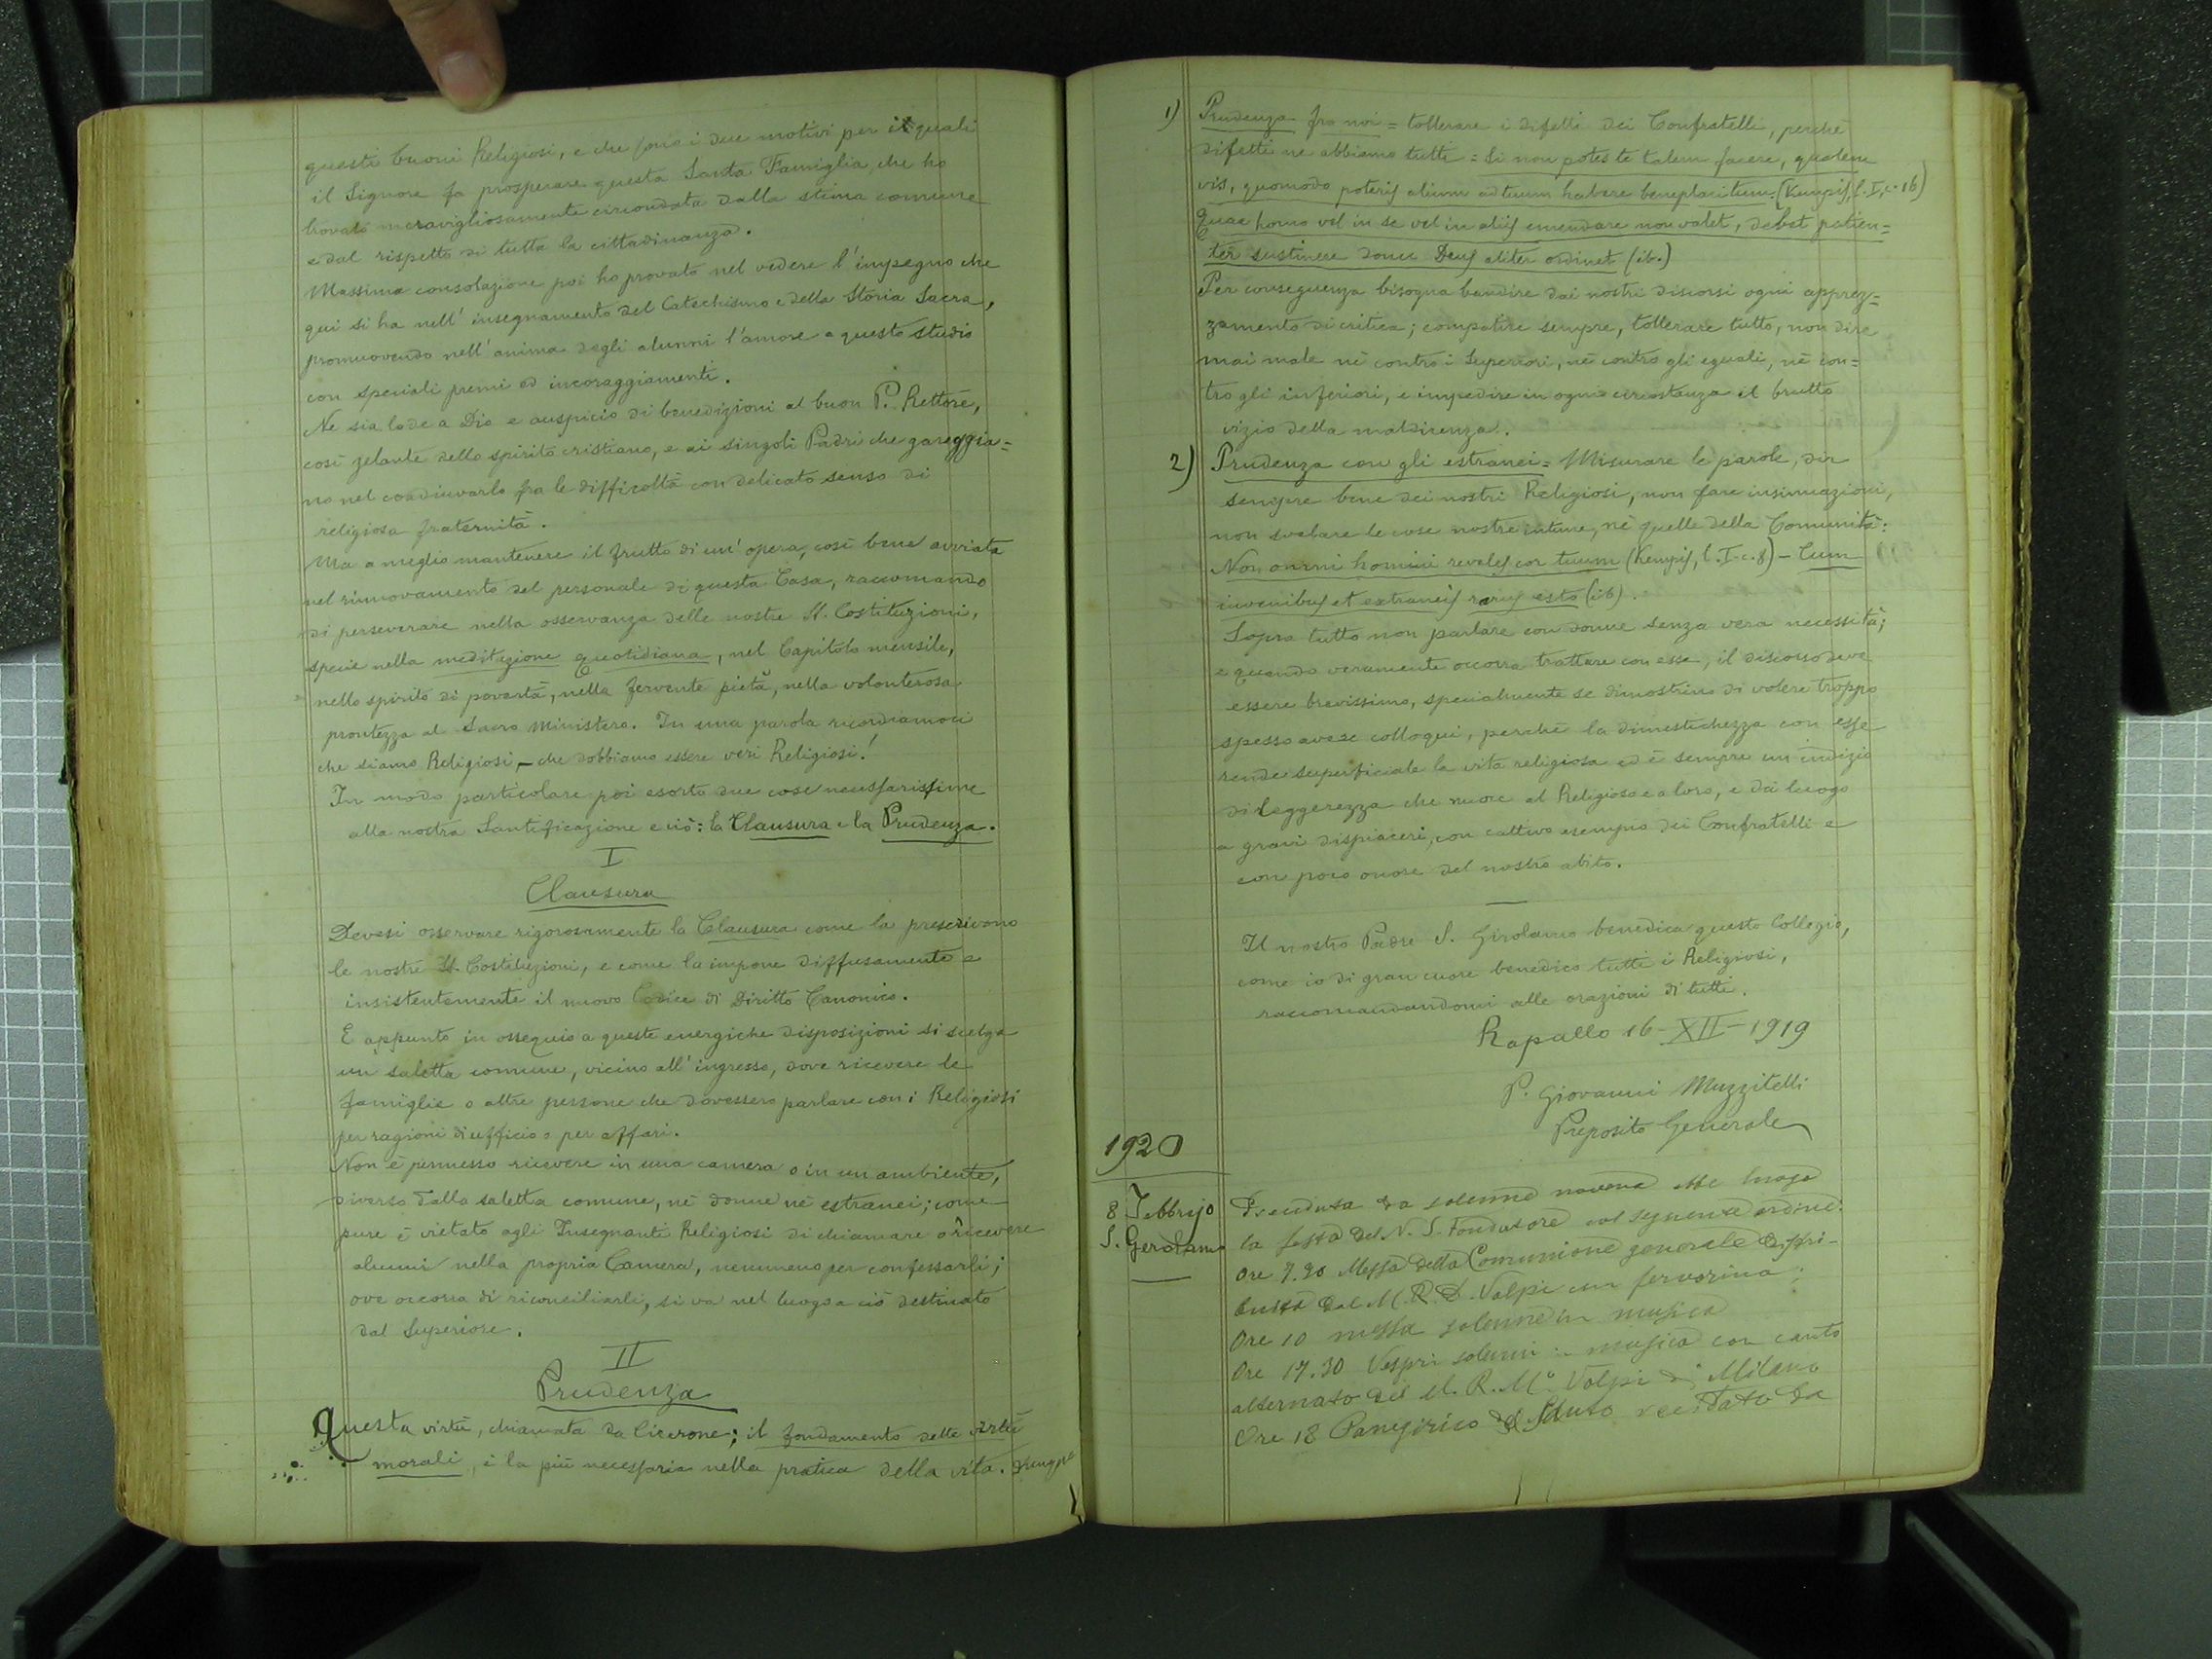 questi buoni Religiosi, e che sono i due motivi per i quali
il Signore fa prosperare questa Santa Famiglia, che ho
trovato meravigliosamente circondata dalla stima comune
e dal rispetto di tutta la cittadinanza.
Massima consolazione poi ho provato nel vedere l'impegno che
qui si ha nell'insegnamento del Catechismo e della Storia Sacra,
promuovendo nell'anima degli alunni l'amore a questo studio
con speciali premi ed incoraggiamenti.
Ne sia lode a Dio e auspicio di benedizioni al buon P. Rettore,
così zelante dello spirito cristiano, e ai singoli Padri che gareggia=
no nel coadiuvarlo fra le difficoltà con delicato senso di
religiosa fraternità.
Ma a meglio mantenere il frutto di un'opera, così bene avviata
nel rinnovamento del personale di questa Casa, raccomando
di perseverare nella osservanza delle nostre SS. Costituzioni,
specie nella meditazione quotidiana, nel Capitolo mensile,
nello spirito di povertà, nella fervente pietà, nella volonterosa
prontezza al Sacro Ministero. In una parola ricordiamoci
che siamo Religiosi, - che dobbiamo essere veri Religiosi!
In modo particolare poi esorto due cose necessarissime
alla nostra Santificazione e ciò: la Clausura e la Prudenza.
I
Clausura
Devesi osservare rigorosamente la Clausura come la prescrivono
le nostre SS. Costituzioni, e come la impone diffusamente e
insistentemente il nuovo Codice di Diritto Canonico.
E appunto in ossequio a queste energiche disposizioni si scelga
un saletta comune, vicino all'ingresso, dove ricevere le
famiglie o altre persone che dovessero parlare con i Religiosi
per ragioni di ufficio o per affari.
Non è permesso ricevere in una camera o in un ambiente,
diverso dalla saletta comune, nè donne nè estranei; come
pure è vietato agli Insegnanti Religiosi di chiamare o ricevere
alunni nella propria Camera, nemmeno per confessarli;
ove occorra di riconciliarli, si va nel luogo a ciò destinato
dal Superiore.
II
Prudenza
Questa virtù, chiamata da Cicerone; il fondamento delle virtù
morali, è la più necessaria nella pratica della vita. Dunque
1) Prudenza fra noi = tollerare i difetti dei Confratelli, perchè
difetti ne abbiamo tutti = Si non potes te talem facere, qualem
vis, quomodo poteris alium ad tuum habere beneplacitum. (Kempis, l. I, c. 16)
Quae homo vel in se vel in aliis emendare non valet, debet patien=
ter sustinere donec Deus aliter ordinet (ib.)
Per conseguenza bisogna bandire dai nostri discorsi ogni apprez=
zamento di critica; compatire sempre, tollerare tutto, non dire
mai male nè contro i Superiori, nè contro gli eguali, nè con=
tro gli inferiori, e impedire in ogni circostanza il brutto
vizio della maldicenza.
2) Prudenza con gli estranei = Misurare le parole, dir
sempre bene dei nostri Religiosi, non fare insinuazioni,
non svelare le cose nostre intime, nè quelle della Comunità:
Non omni homini reveles cor tuum (Kempis, l. I. c. 8) - Cum
iuvenibus et extraneis rarus esto (ib).
Sopra tutto non parlare con donne senza vera necessità;
e quando veramente occorra trattare con esse, il discorso deve
essere brevissimo, specialmente se dimostrino di volere troppo
spesso avere colloqui, perchè la dimestichezza con esse
rende superficiale la vita religiosa ed è sempre un indizio
di leggerezza che nuoce al Religioso e a loro, e dà luogo
a gravi dispiaceri, con cattivo esempio dei Confratelli e
con poco onore del nostro abito.
Il nostro Padre S. Girolamo benedica questo Collegio,
come io di gran cuore benedico tutti i Religiosi,
raccomandandomi alle orazioni di tutti.
Rapallo 16-XII-1919
P. Giovanni Muzzitelli
Preposito Generale
1920
8 Febbrajo
S. Gerolamo
Preceduta da solenne novena ebbe luogo
la festa del N. S. Fondatore col seguente ordine:
Ore 7.30 Messa della Comunione generale distri-
buita dal M. R. D. Volpi con fervorino;
Ore 10 messa solenne in musica
Ore 17.30 Vespri solenni in musica con canto
alternato del M. R. Mo. Volpi di Milano
Ore 18 Panegirico del Santo recitato da